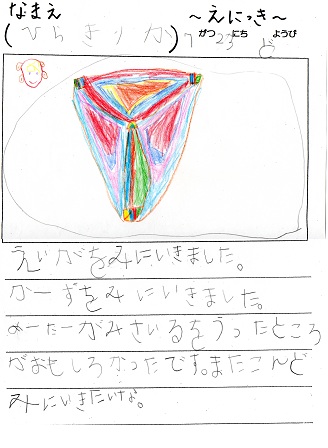 なまえ
～えにっき～
(ひらきりか) 7がつ 23にち どようび
えいがをみにいきました。
かーずをみにいきました。
めーたーがみさいるをうったところ
がおもしろかったです。またこんど
みにいきたいな。